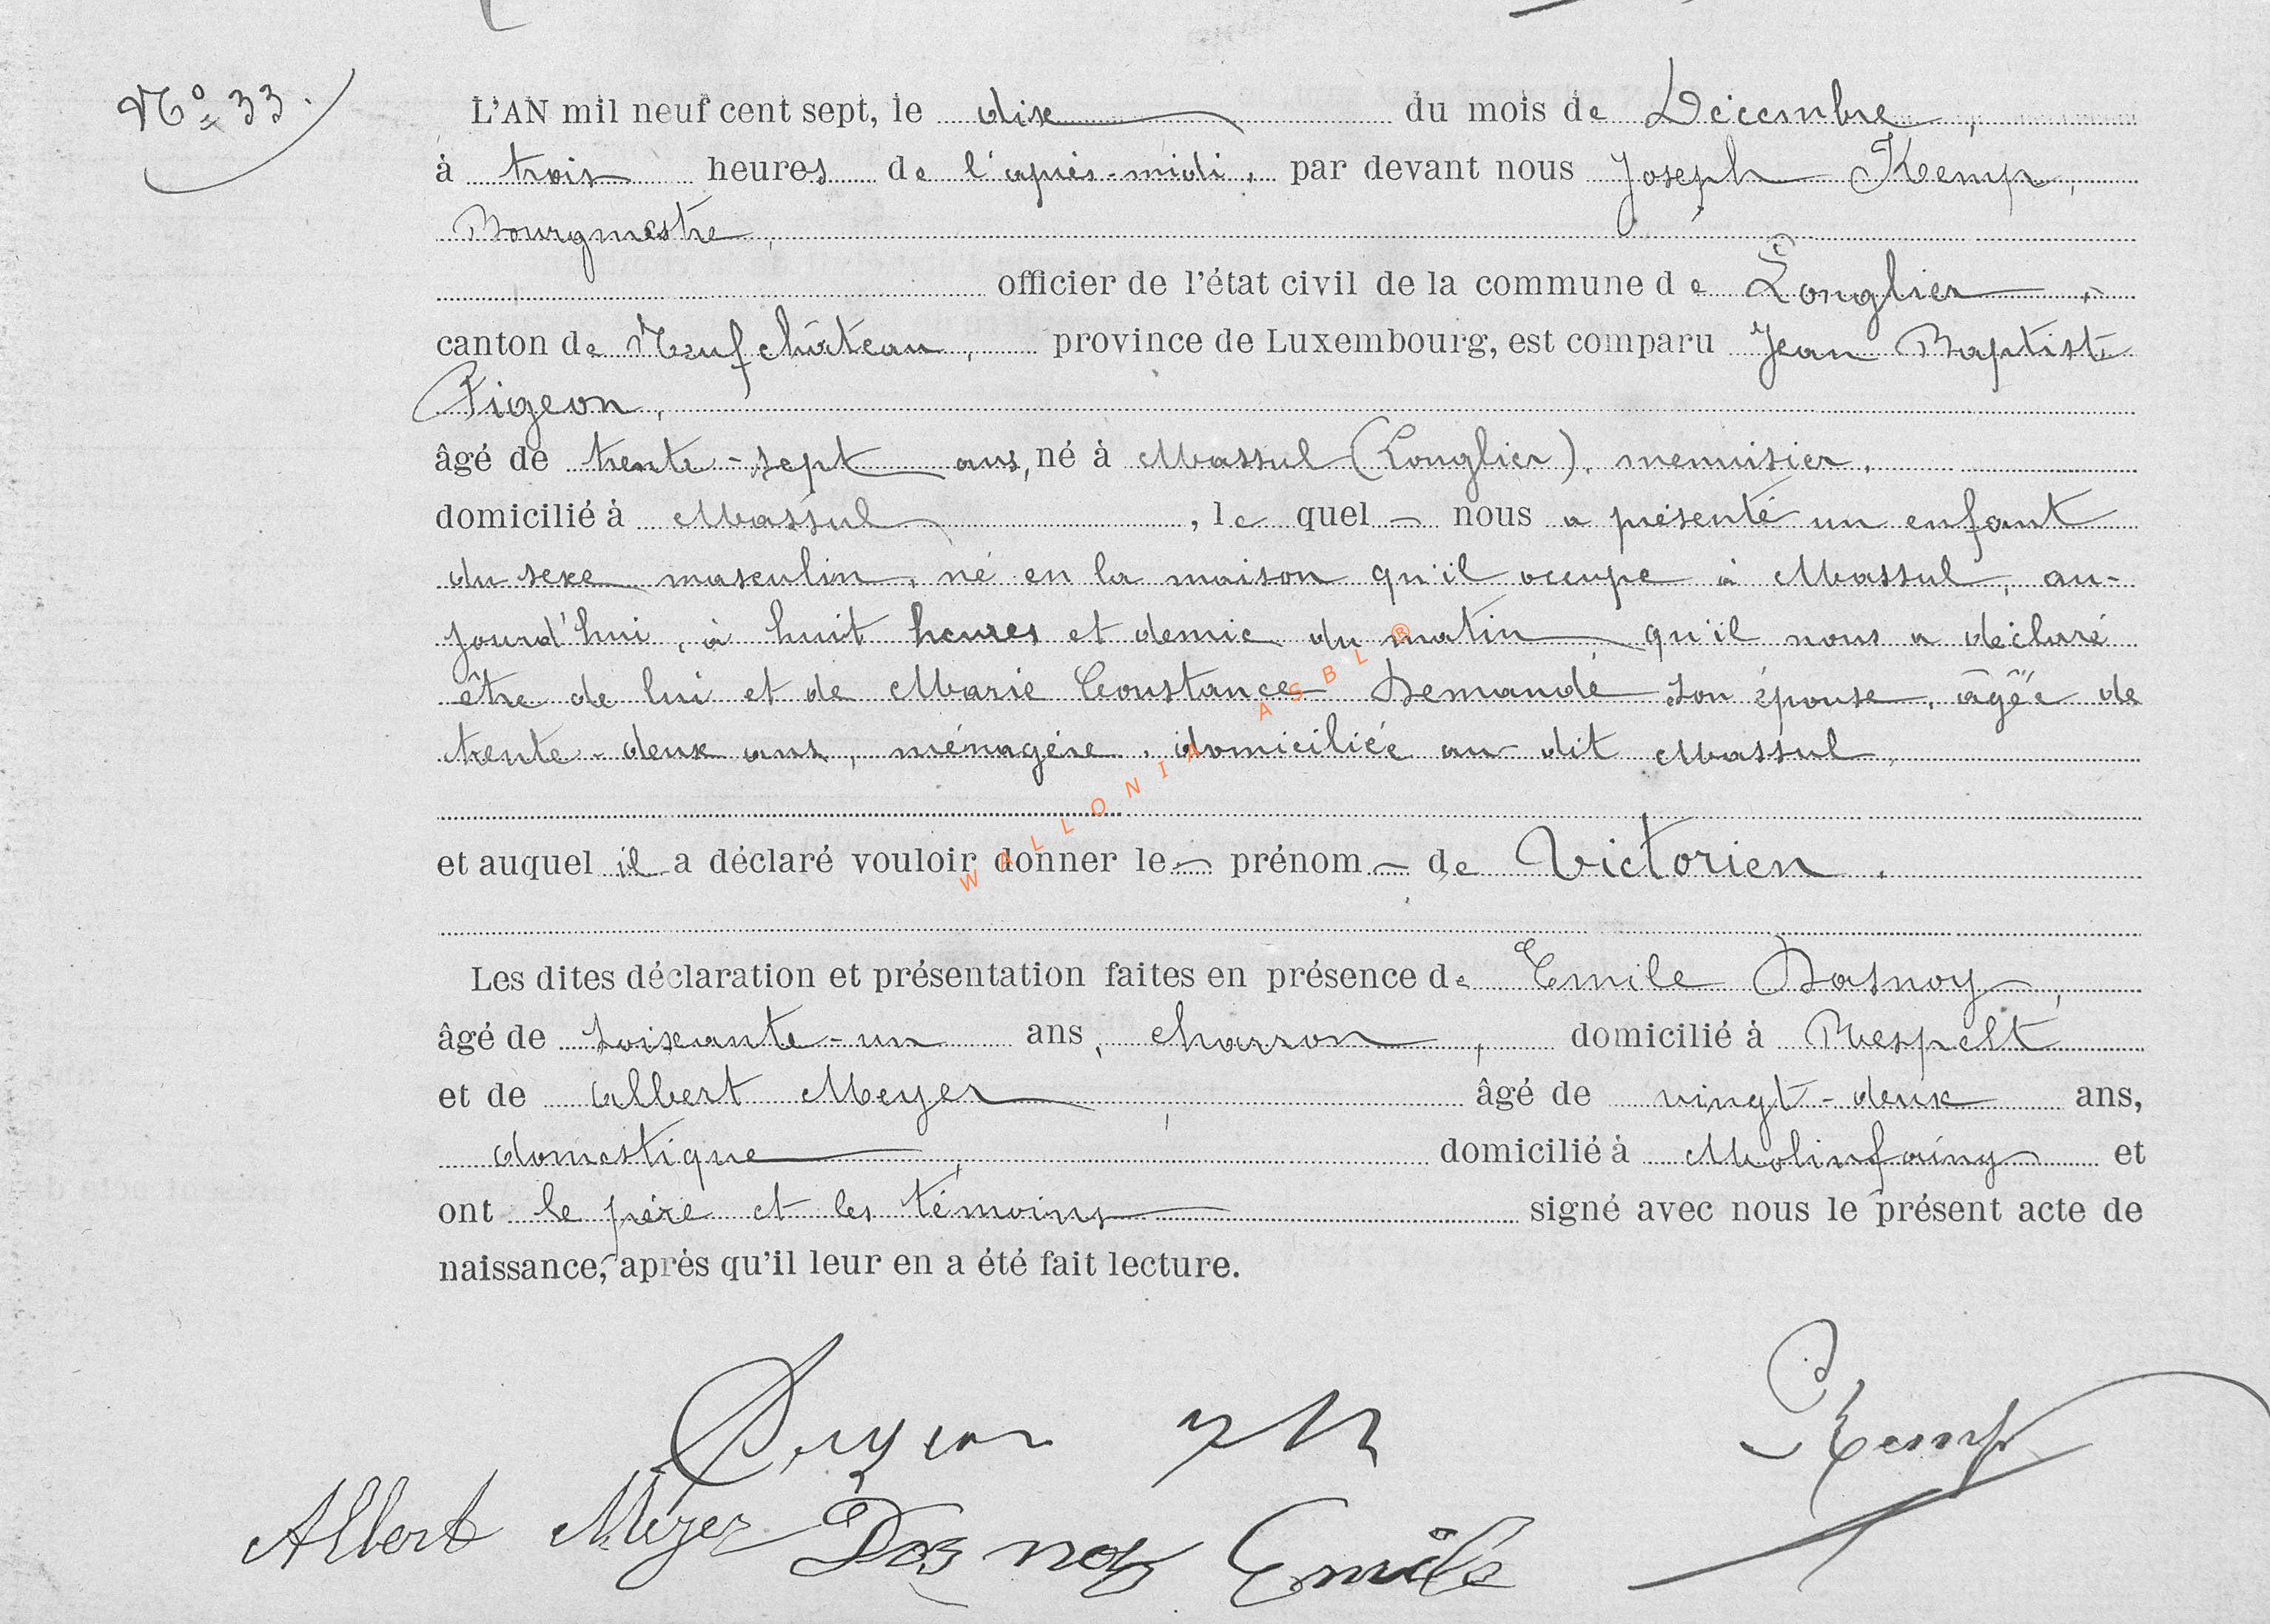 N° 33.
L'AN mil neuf cent sept, le dix du mois de Décembre,
à trois heures de l'après-midi, par devant nous Joseph Kemp,
Bourgmestre,
officier de l'état civil de la commune de Longlier,
canton de Neufchâteau, province de Luxembourg, est comparu Jean Baptiste
Pigeon,
âgé de trente-sept ans, né à Massul (Longlier), menuisier,
domicilié à Massul, le quel nous a présenté un enfant
du sexe masculin, né en la maison qu'il occupe à Massul, au-
jourd'hui, à huit heures et demie du matin qu'il nous a déclaré
être de lui et de Marie Constance Demande son épouse, âgée de
trente-deux ans, ménagère, domiciliée au dit Massul,
et auquel il a déclaré vouloir donner le prénom de Victorien.
Les dites déclaration et présentation faites en présence de Emile Dasnoy,
âgé de soixante-un ans, charron, domicilié à Respelt
et de Albert Meyer, âgé de vingt-deux ans,
domestique, domicilié à Molinfaing et
ont le père et les témoins signé avec nous le présent acte de
naissance, après qu'il leur en a été fait lecture.
Pigeon JB Kemp
Albert Meyer Dasnoy Emile
WALLONIA ASBL ®